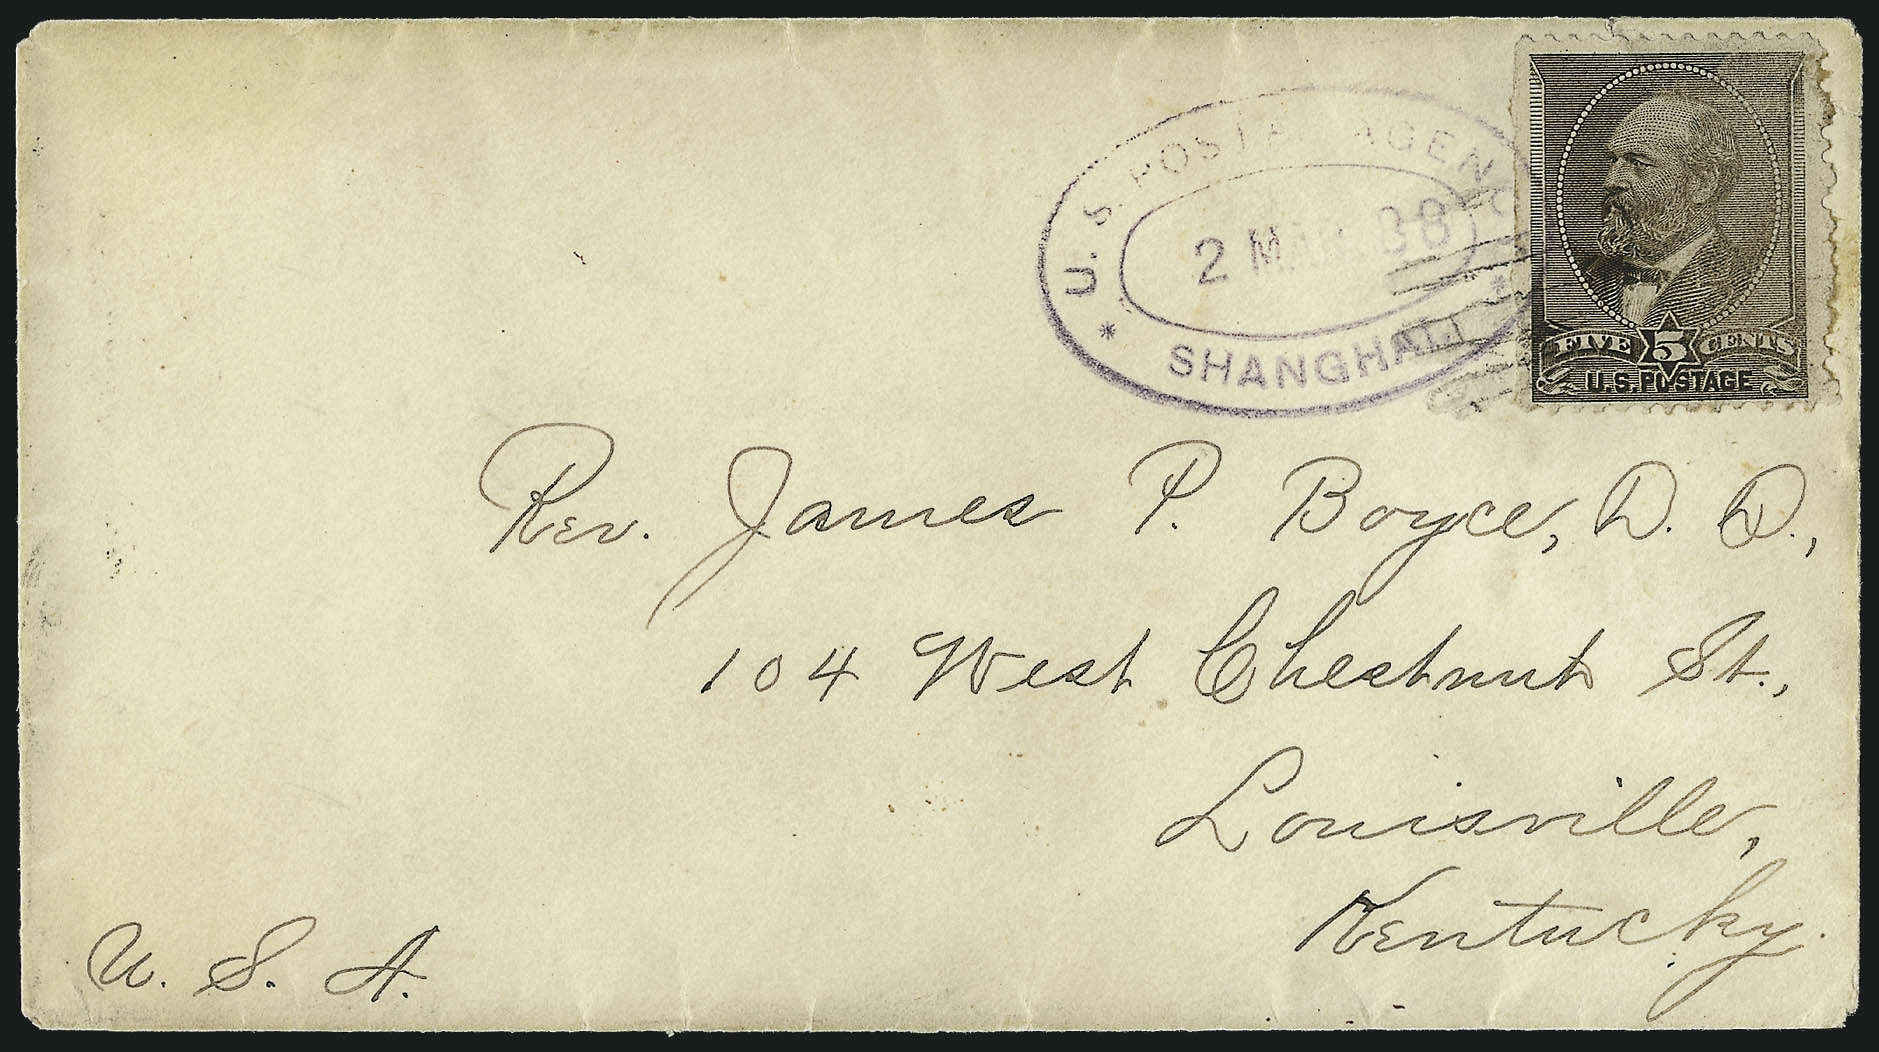 U.S. POSTAL AGENCY
2 MAR 88
SHANGHAI
FIVE 5 CENTS
U.S. POSTAGE
Rev. James P. Boyce, D. D.,
104 West Chestnut St.,
Louisville,
Kentucky.
U. S. A.